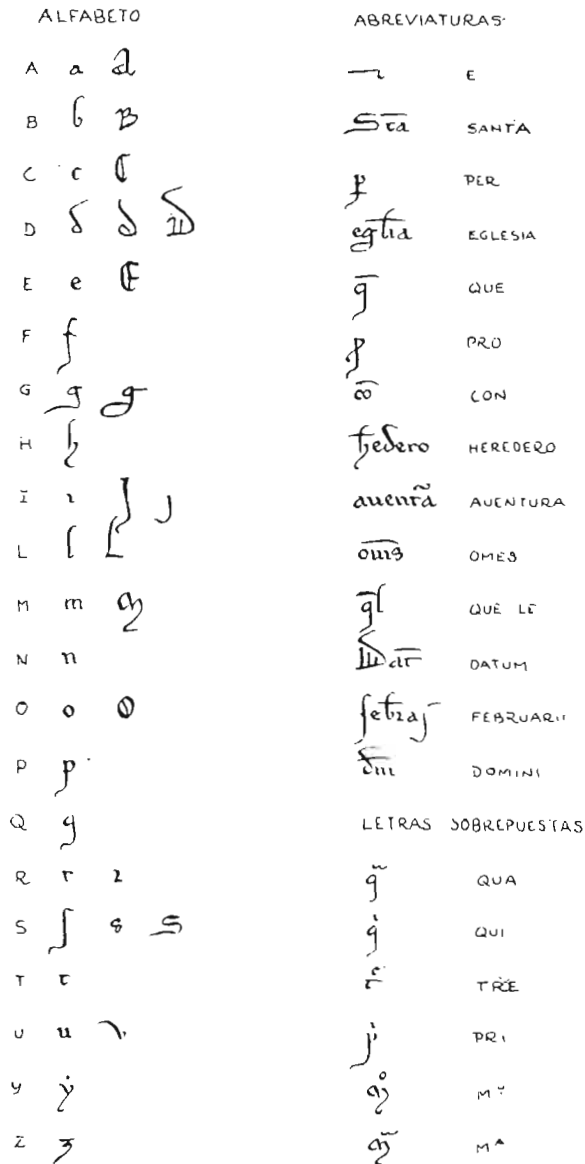 ALFABETO
A a a
B b B
C c C
D d d D
E e E
F f
G g g
H h
I ı J j
L l L
M m m
N n
O o O
P p
Q q
R r 2
S ſ s S
T t
U u v
Y ẏ
Z z
ABREVIATURAS
E
S̅t̅a̅ SANTA
ꝑ PER
egl̅ia EGLESIA
q̅ QUE
ꝓ PRO
CON
ħedero HEREDERO
auent̃a AUENTURA
om̅s OMES
q̅l QUE LE
Dat̅ DATUM
febraj FEBRUARII
dm̅ DOMINI
LETRAS SOBREPUESTAS
q̃ QUA
qͥ QUI
tͤ TRE
pͥ PRI
mͦ
m̃ Mᴬ